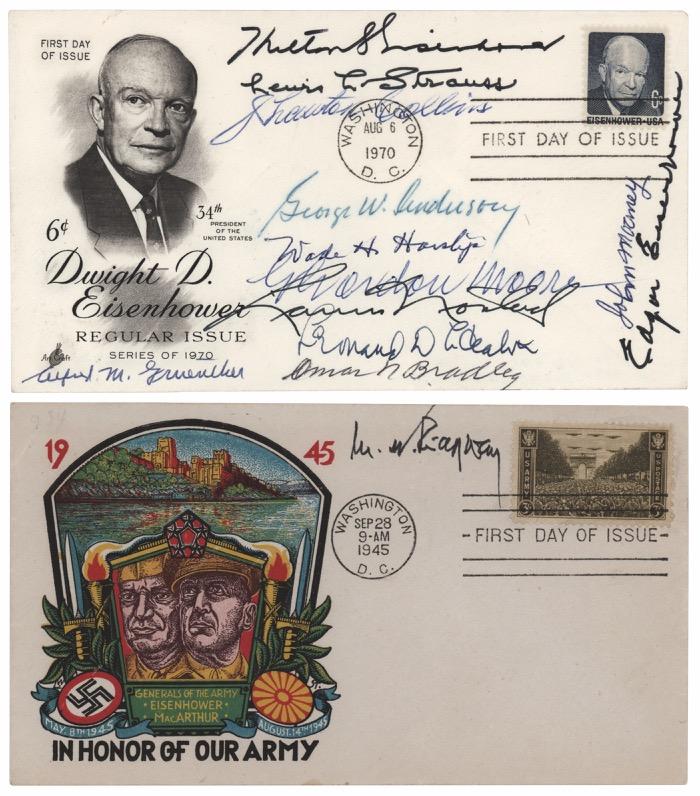 FIRST DAY
OF ISSUE
Milton S. Eisenhower
Lewis L. Strauss
J. Lawton Collins
6c
EISENHOWER·USA
WASHINGTON
AUG 6
1970
D. C.
FIRST DAY OF ISSUE
6¢
34th
PRESIDENT
OF THE
UNITED STATES
Dwight D.
Eisenhower
REGULAR ISSUE
SERIES OF 1970
Art Craft
George W. Anderson
Wade H. Haislip
Moore
Omar N Bradley
Alfred M. Gruenther
Edgar Eisenhower
19 45
M. B. Ridgway
U.S. ARMY
3¢
U.S. POSTAGE
3¢
WASHINGTON
SEP 28
9-AM
1945
D. C.
-FIRST DAY OF ISSUE-
GENERALS OF THE ARMY
EISENHOWER
MACARTHUR
MAY 8TH 1945
AUGUST 14TH 1945
IN HONOR OF OUR ARMY